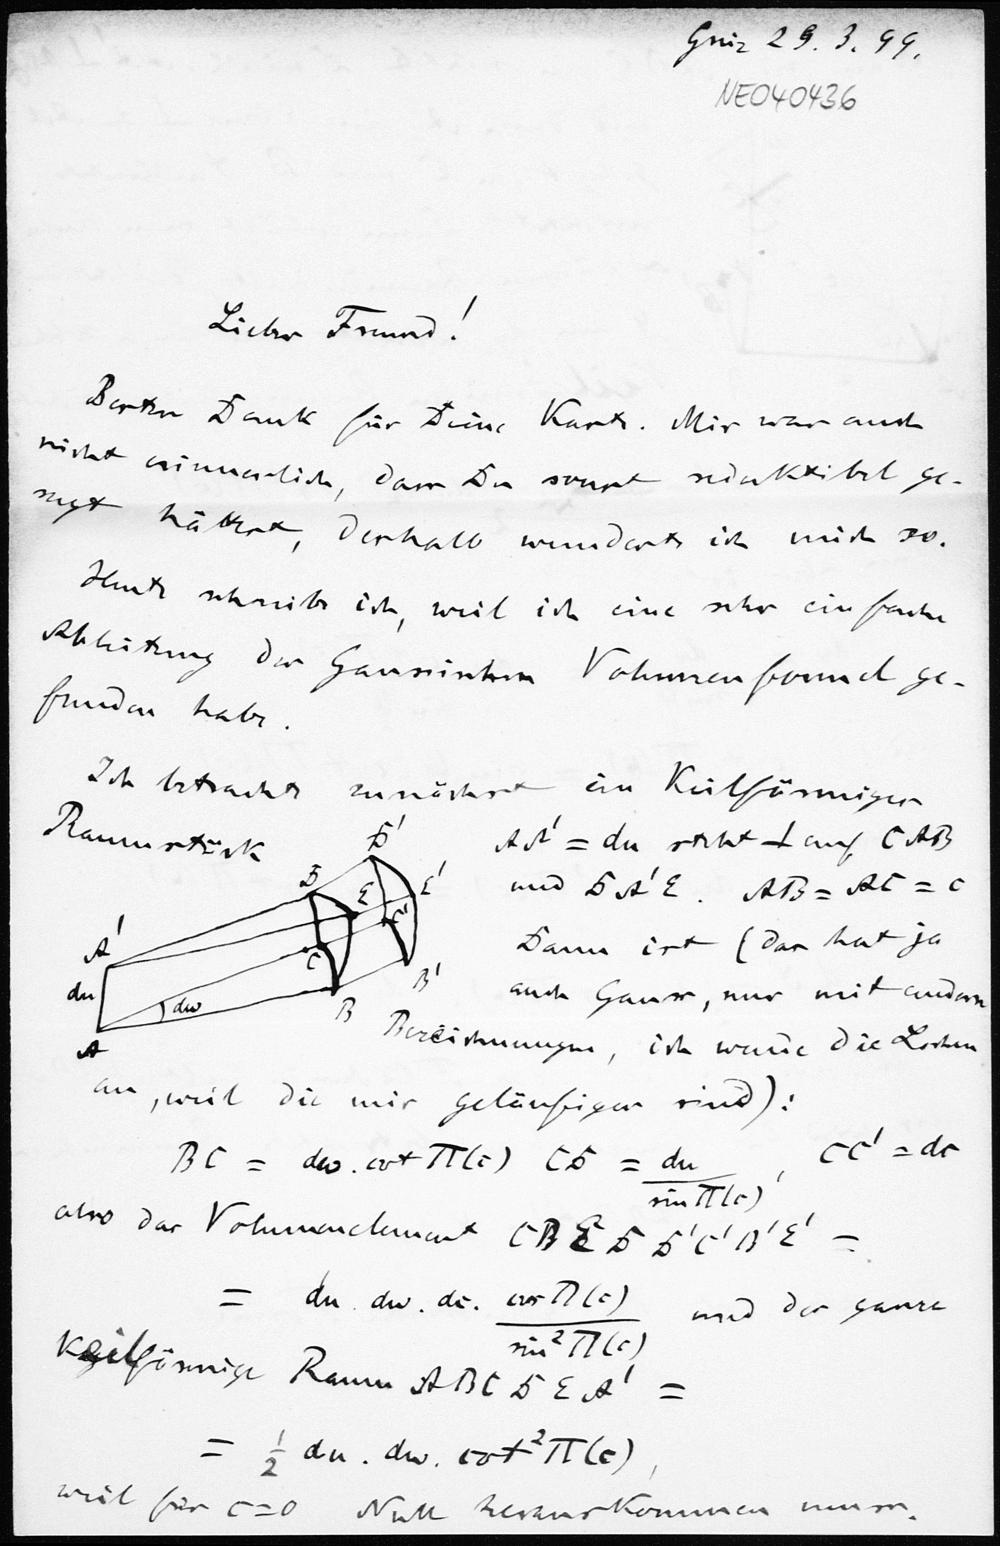 Gniz 29. 3. 99.
NE040436
Lieber Freund!
Besten Dank für Deine Karte. Mir war auch
nicht erinnerlich, dass Du sonst reduktibel ge-
sagt hättest, deshalb wunderte ich mich so.
Heute schreibe ich, weil ich eine sehr einfache
Ableitung der Gaussischen Volumenformel ge-
funden habe.
Ich betrachte zunächst ein Keilförmiges
Raumstück
AA' = du steht ⊥ auf CAB
und DA'E. AB = AC = c
Dann ist (das hat ja
auch Gauss, nur mit andern
Bezeichnungen, ich wende die Lobsch
an, weil die mir geläufiger sind):
D'
D
E
E'
A'
C
C'
du
dω
B
B'
A
BC = dω . cot Π(c) CD = du / sin Π(c) , CC' = dc
also das Volumenelement CBEDD'C'B'E' =
= du . dω . dc . cos Π(c) / sin² Π(c) und der ganze
Keilförmige Raum ABCDEA' =
= 1/2 du . dω . cot² Π(c),
weil für c=0 Null herauskommen muss.